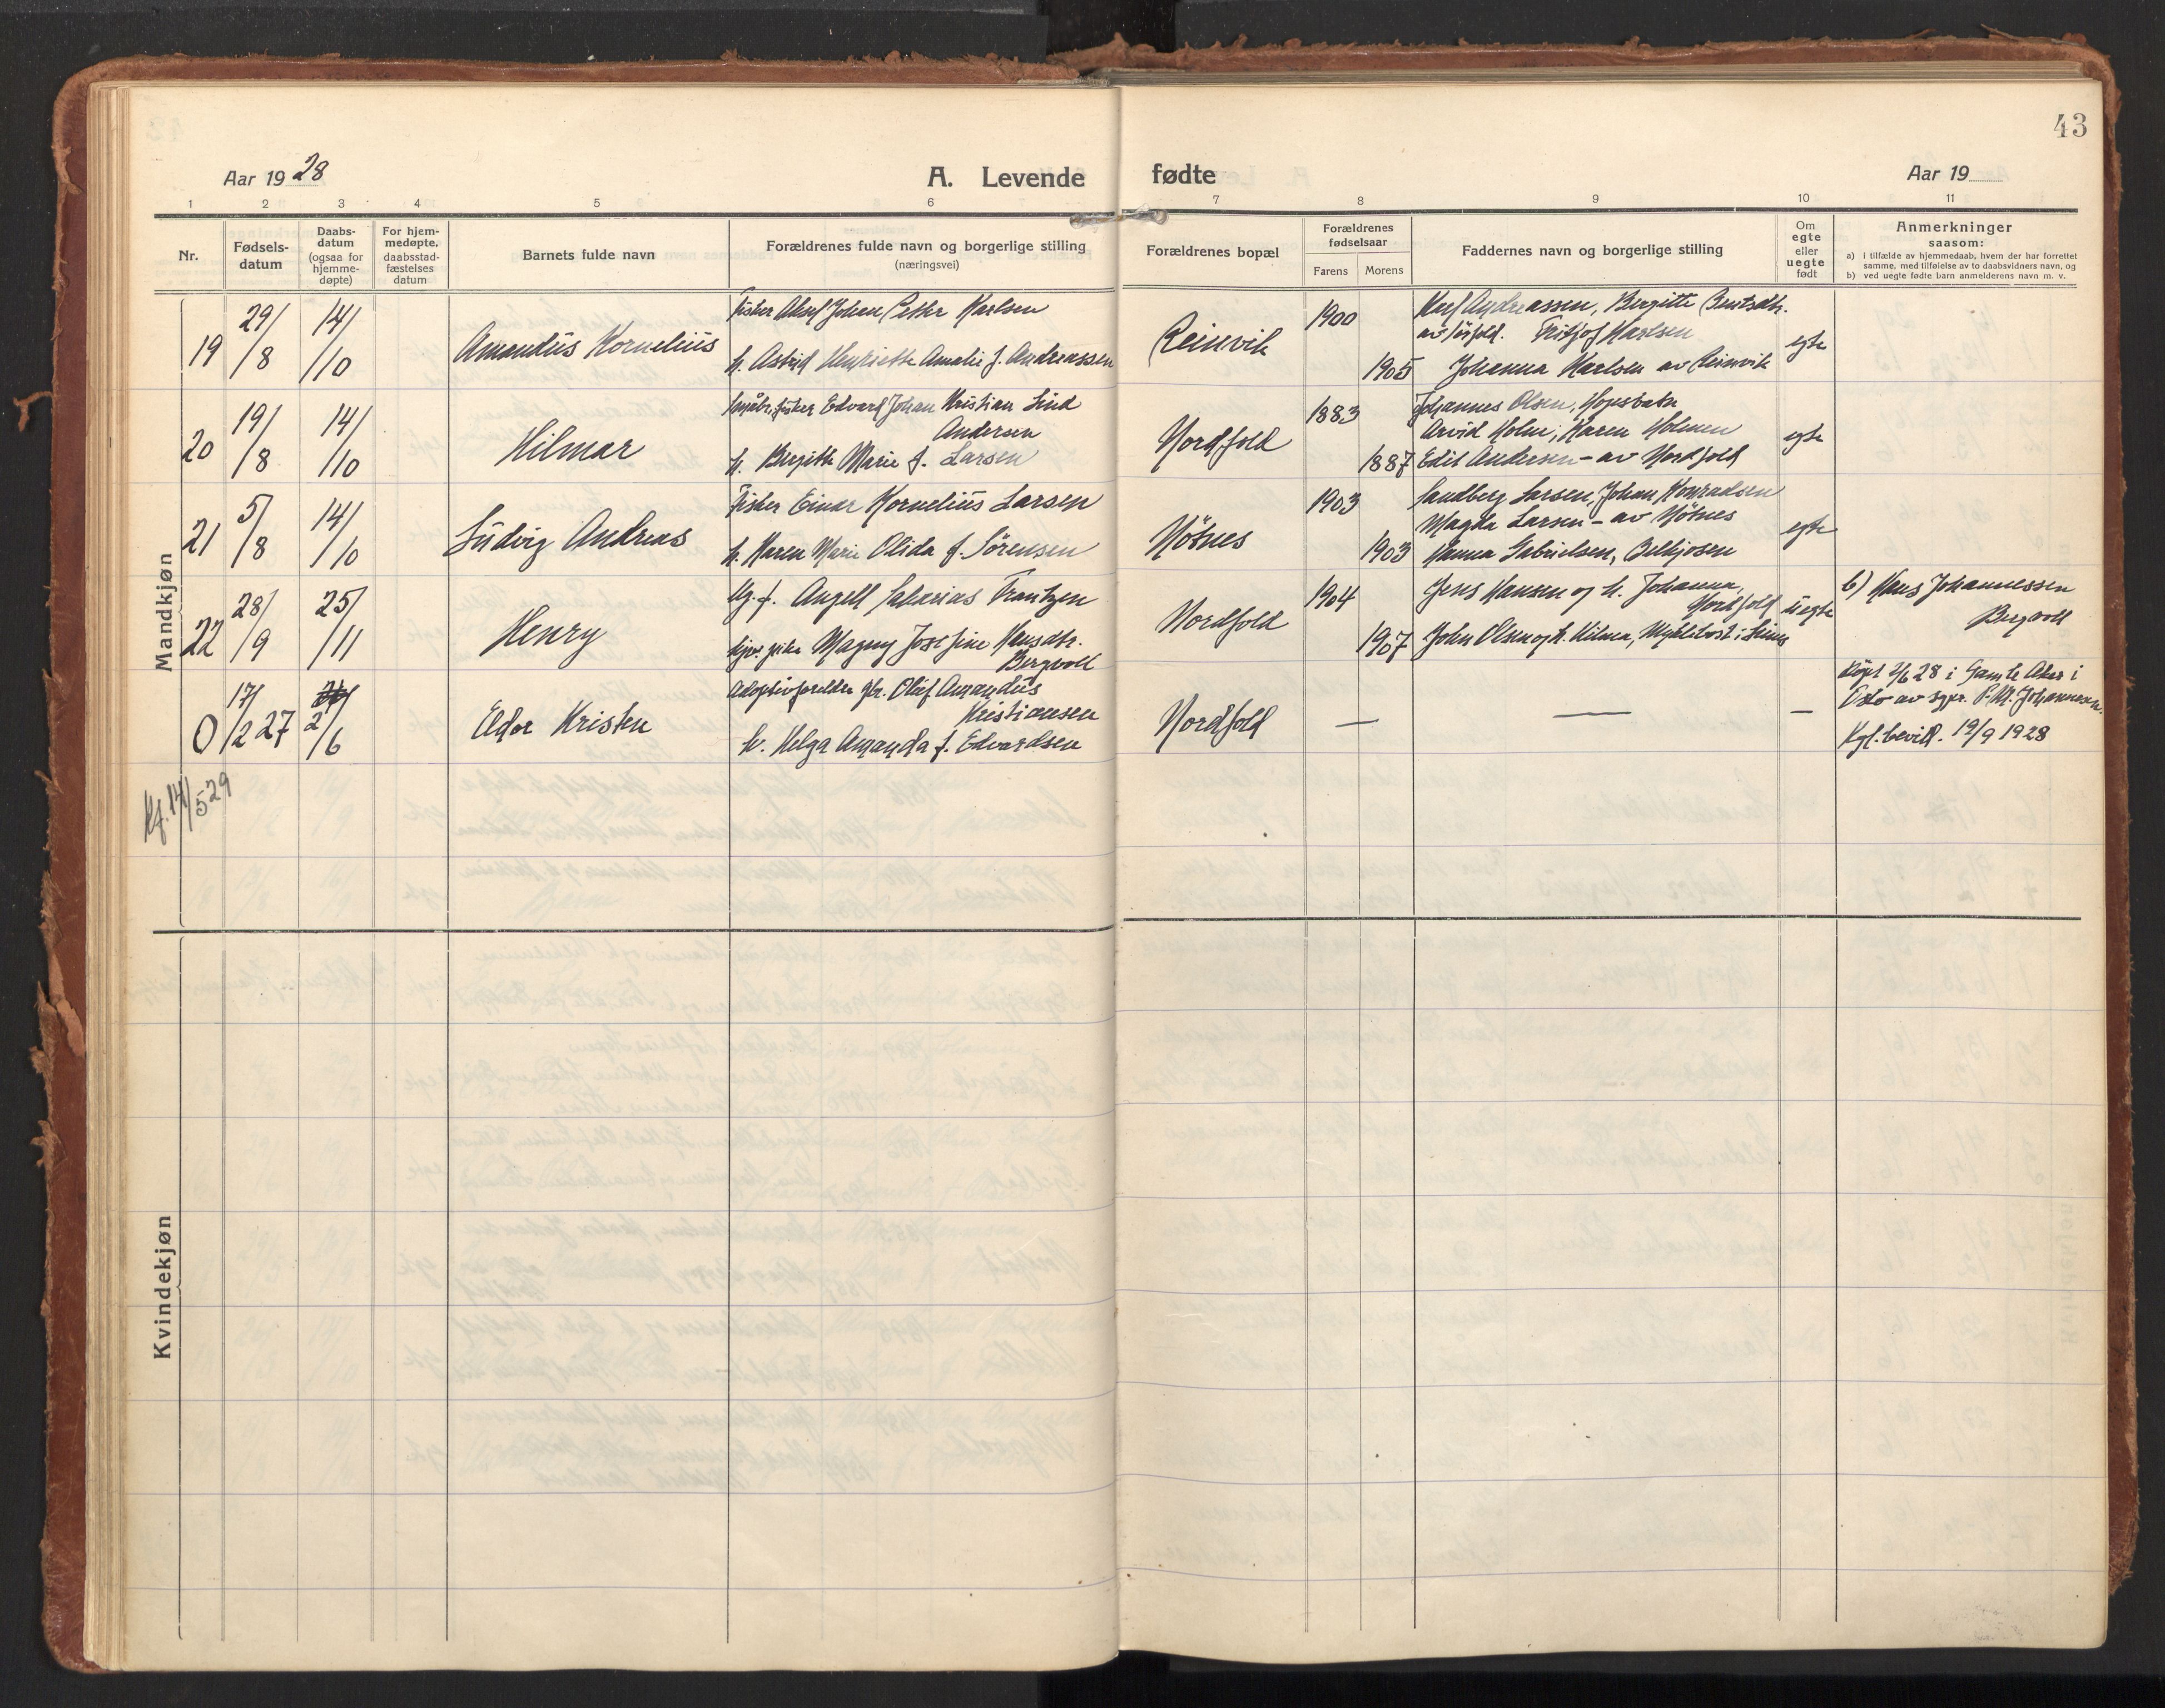 43
Aar 1928
A. Levende fødte
Aar 19
1 2 3 4 5 6 7 8 9 10 11
Nr.
Fødsels-
datum
Daabs-
datum
(ogsaa for
hjemme-
døpte)
For hjem-
medøpte,
daabsstad-
fæstelses
datum
Barnets fulde navn
Forældrenes fulde navn og borgerlige stilling
(næringsvei)
Forældrenes bopæl
Forældrenes
fødselsaar
Farens Morens
Faddernes navn og borgerlige stilling
Om
egte
eller
uegte
født
Anmerkninger
saasom:
a) i tilfælde av hjemmedaab, hvem der har forrettet
samme, med tilføielse av to daabsvidners navn, og
b) ved uegte fødte barn anmelderens navn m. v.
Mandkjøn
19 29/8 14/10 Amandus Kornelius
Fisker Aksel Johan Pether Karlsen
h. Astrid Henriette Amalie f. Andreassen
Reinvik
1900
1905
Karl Andreassen, Bergitte Bentsdtr.
av Sörfold. Fritjof Karlsen
Johanna Karlsen av Reinvik
egte
20 19/8 14/10 Hilmar
Småbr. fisker Edvard Johan Kristian Lind
Andersen
h. Bergitte Marie f. Larsen
Nordfold
1883
1887
Johannes Olsen,
Arvid Holm, Karen Holmen
Edit Andersen - av Nordfold
egte
21 5/8 14/10 Ludvig Andreas
Fisker Einar Kornelius Larsen
h. Karen Marie Olida f. Sörensen
Nötnes
1903
1903
Sandberg Larsen, Johan Konradsen
Magda Larsen - av Nötnes
Hanna Gabrielsen,
egte
22 28/9 25/11 Henry
Ug. f. Angell Sakarias Frantzen
pike Magny Josefine Hansdtr.
Bergvoll
Nordfold
1904
1907
Jens Hansen og h. Johanna,
Nordfold
John Olsen og h. Hilma, Myklebost i
uegte
b) Hans Johannessen
Bergvoll
0 17/2 27 2/6 Eldor Kristen
Adoptivforeldre gbr. Olaf Amandus
Kristiansen
h. Helga Amanda f. Edvardsen
Nordfold
— — —
Döpt 2/6 28 i Gamle Aker i
Oslo av sgpr. P. M. Johannesen.
Kgl. bevill. 19/9 1928
Kf. 14/5 29
Kvindekjøn